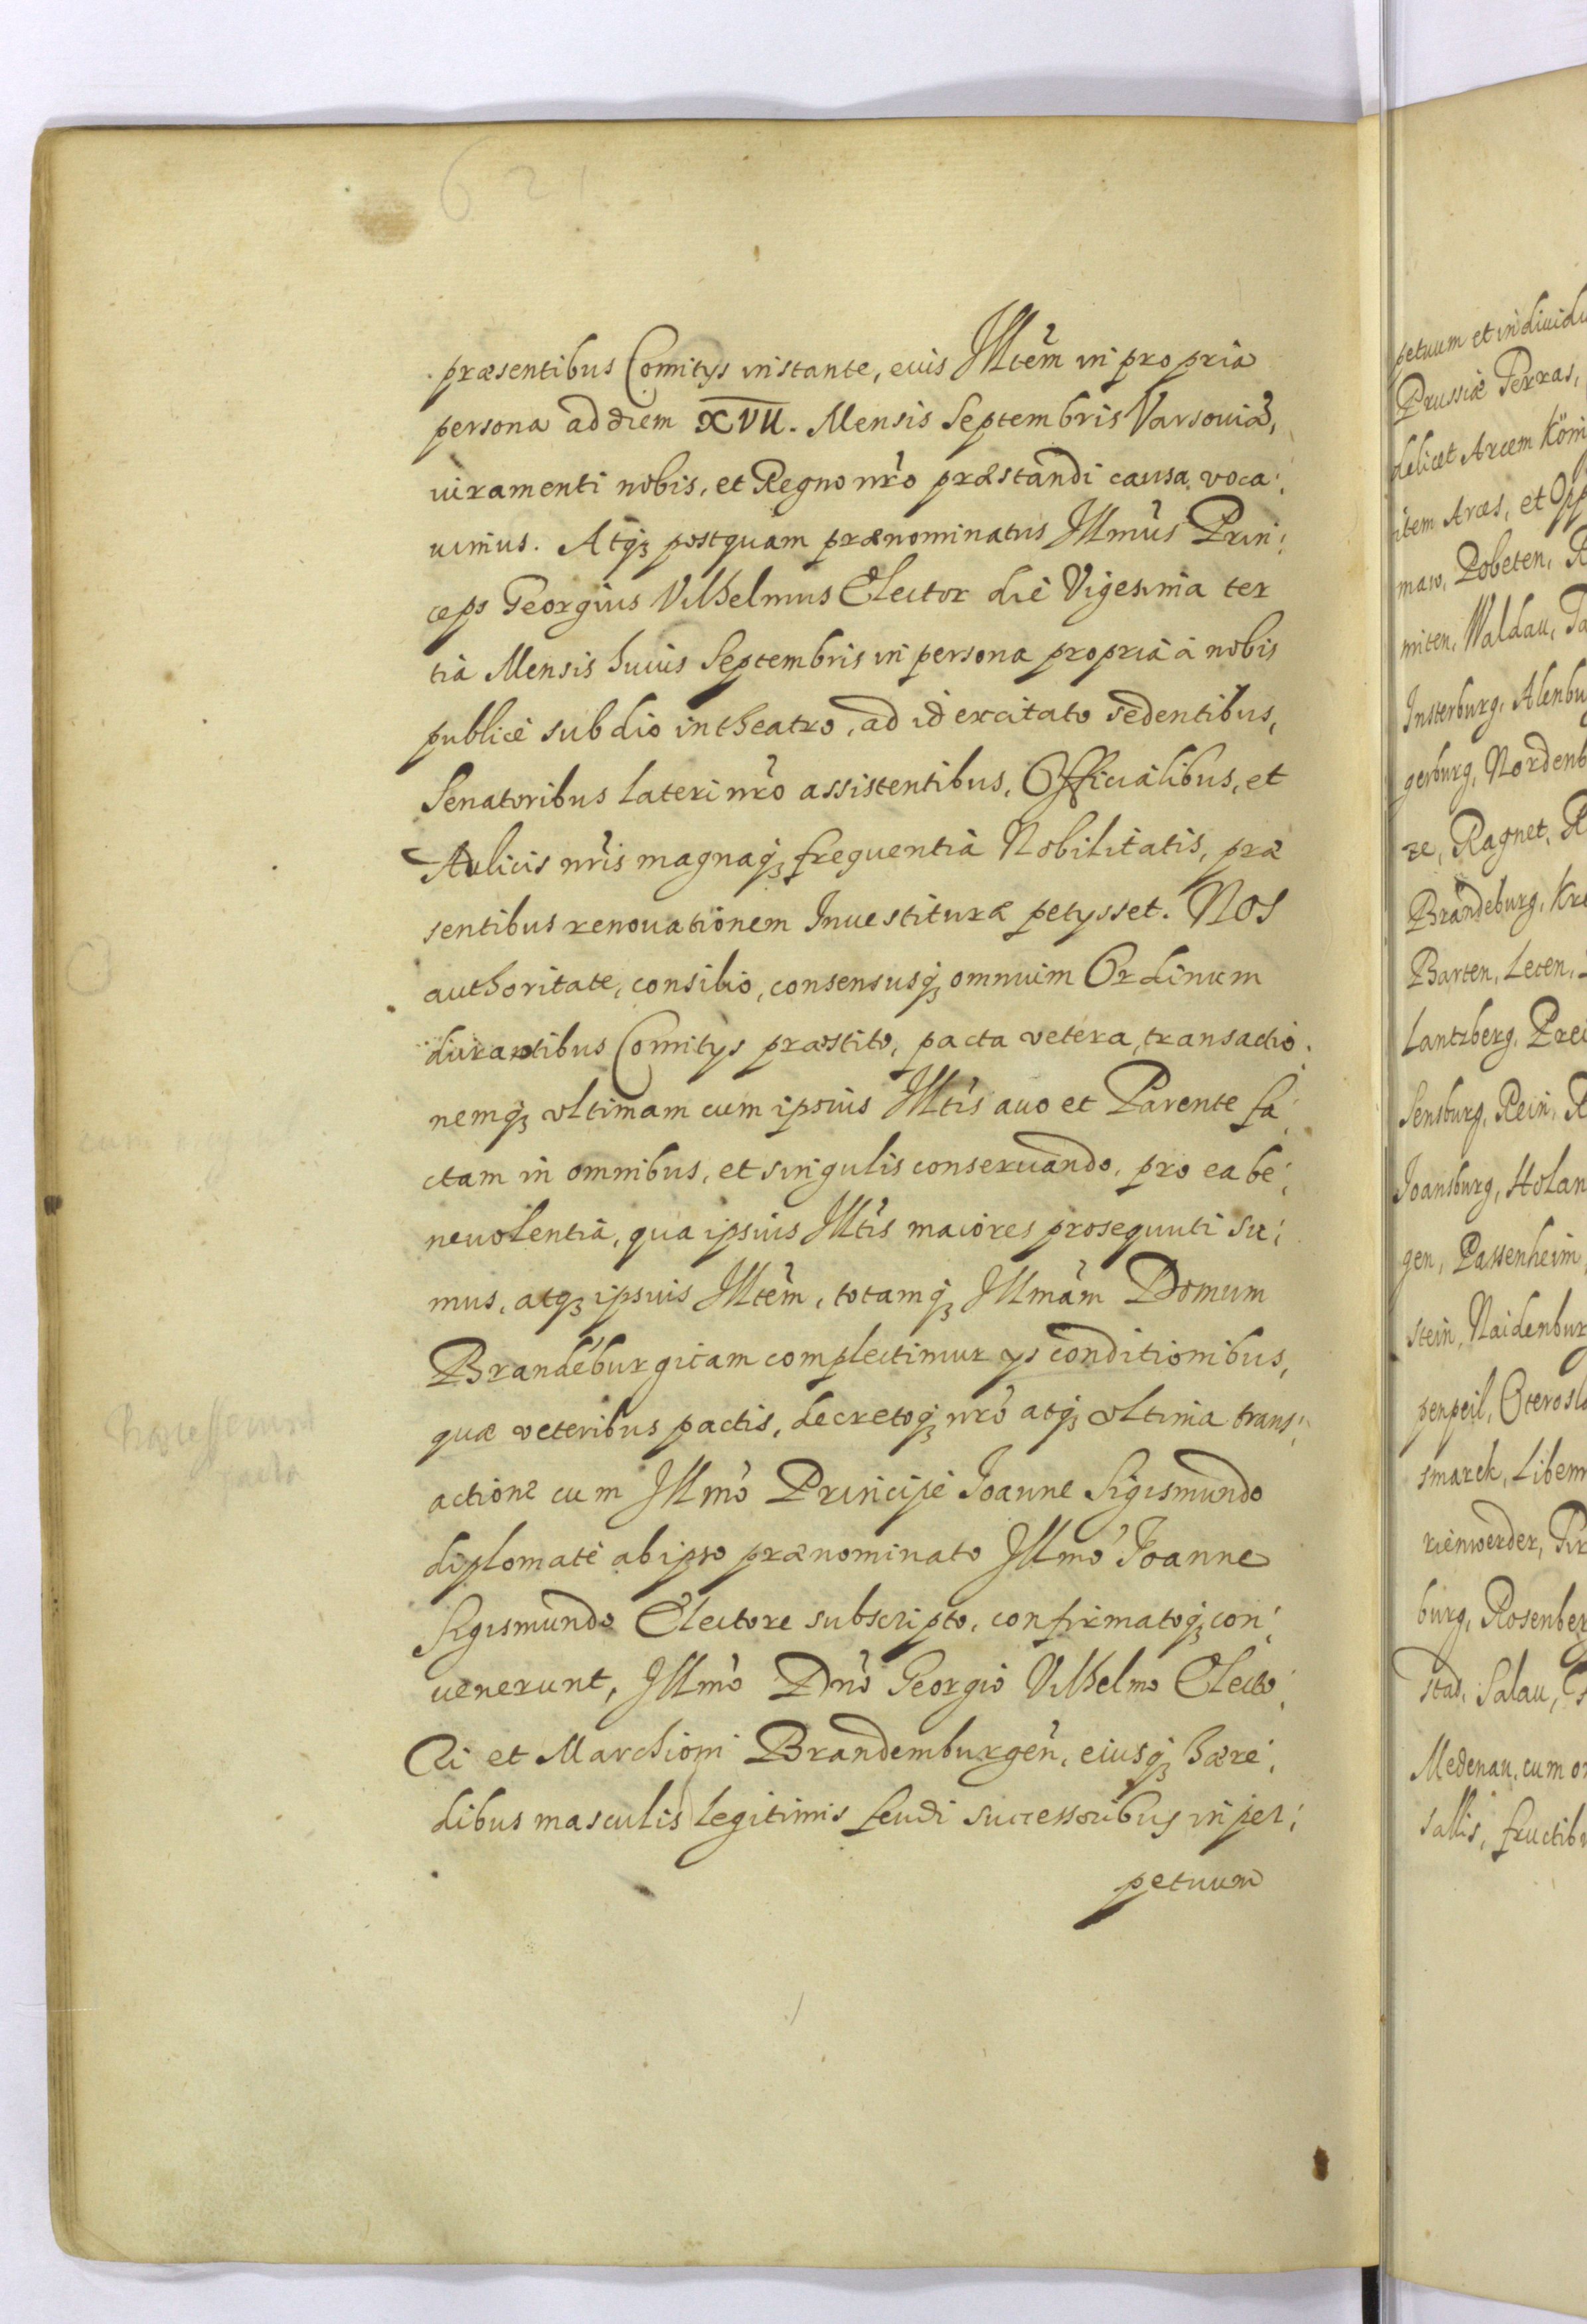 621
præsentibus Comitÿs instante, euis Illtem̃ in propria
persona ad diem XVII. Mensis Septembris Varsouiæ,
iuramenti nobis, et Regno nr̃o præstandi causa voca:
uimus. Atqꝫ postquam prænominatus Illmũs Prin:
ceps Georgius Vilhelmus Elector die Vigesima ter
tia Mensis huius Septembris in persona propria á nobis
publicè sub dio in theatro, ad id excitato sedentibus,
Senatoribus lateri nr̃o assistentibus, Officialibus, et
Aulicis nr̃is magnaqꝫ frequentia Nobilitatis, præ
sentibus renouationem Inuestituræ petÿsset. Nos
authoritate, consilio, consensusqꝫ omnium Ordinum
durantibus Comitÿs præstito, pacta vetera, transactio:
nemqꝫ vltimam cum ipsius Illtĩs auo et Parente fa:
ctam in omnibus, et singulis conseruando, pro ea be:
neuolentia, qua ipsius Illtĩs maiores prosequuti su:
mus, atqꝫ ipsius Illtem̃, totamqꝫ Illmãm Domum
Brandẽburgicam complectimur ÿs conditionibus,
quæ veteribus pactis, decretoqꝫ nr̃o atqꝫ vltima trans:
actione cum Illmõ Principe Joanne Sigismundo
diplomate ab ipso prænominato Illmõ Joanne
Sigismundo Electore subscripto, confirmatoqꝫ con:
uenerunt, Illmõ Dnõ Georgio Vilhelmo Electo:
Ri et Marchioni Brandemburgeñ, eiusqꝫ hære:
dibus masculis legitimis feudi successoribus in per:
petuum
petuum et indiuidu
Prussiæ Terras,
delicet Arcem Köni
item Arces, et Opp
maw, Pobeten, R
miten, Waldau, Ta
Insterburg, Alenbu
gerburg, Nordenb
ze, Ragnet, R
Brandeburg, Kre
Barten, Lecen,
Lantzberg, Prei
Sensburg, Rein, R
Joansburg, Holan
gen, Passenheim,
stein, Naidenbur
penpeil, Oteroslo
smarck, Libem
rienwerder,
burg, Rosenber
stad, Salau,
Medenau, cum o
sallis, fructibu